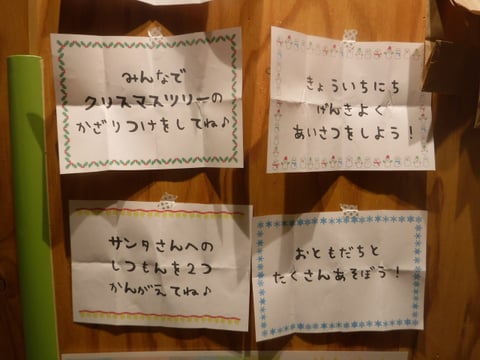 みんなで
クリスマスツリーの
かざりつけをしてね♪
きょういちにち
げんきよく
あいさつをしよう！
サンタさんへの
しつもんを２つ
かんがえてね♪
おともだちと
たくさんあそぼう！